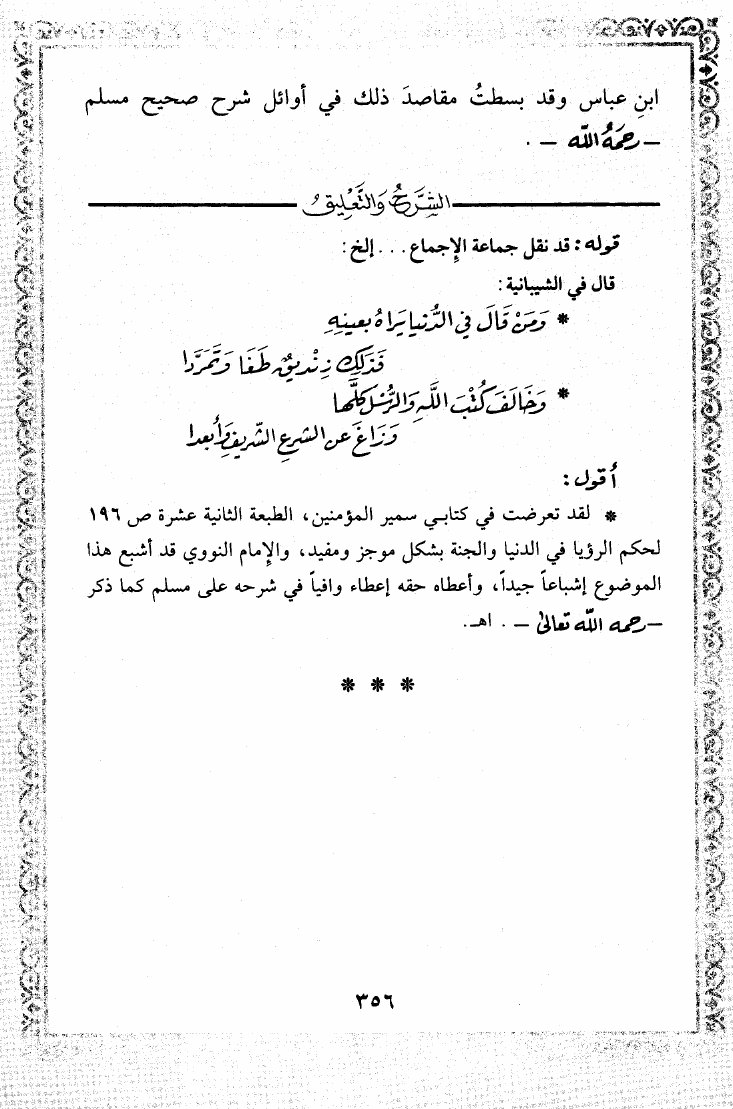 ابنِ عباس وقد بسطتُ مقاصدَ ذلك في أوائل شرح صحيح مسلم
—رحمَهُ اللّٰه — .
الشَّرحُ وَالتَّعْليقُ
قوله: قد نقل جماعة الإِجماع . . . إلخ:
قال في الشيبانية:
* وَمَنْ قَالَ فِي الدُّنيا يَرَاهُ بعينِهِ
فَذَلِكَ زِنْديقٌ طَغَا وَتَمَرَّدا
* وَخَالَفَ كُتْبَ اللَّهِ وَالرُّسْلَ كلَّها
وَزَاغَ عن الشرعِ الشّريفِ وَأَبعدا
أقول:
* لقد تعرضت في كتابي سمير المؤمنين، الطبعة الثانية عشرة ص ١٩٦
لحكم الرؤيا في الدنيا والجنة بشكل موجز ومفيد، والإِمام النووي قد أشبع هذا
الموضوع إشباعاً جيداً، وأعطاه حقه إعطاء وافياً في شرحه على مسلم كما ذكر
—رحمه اللّٰه تعالىٰ — . اهـ.
* * *
٣٥٦